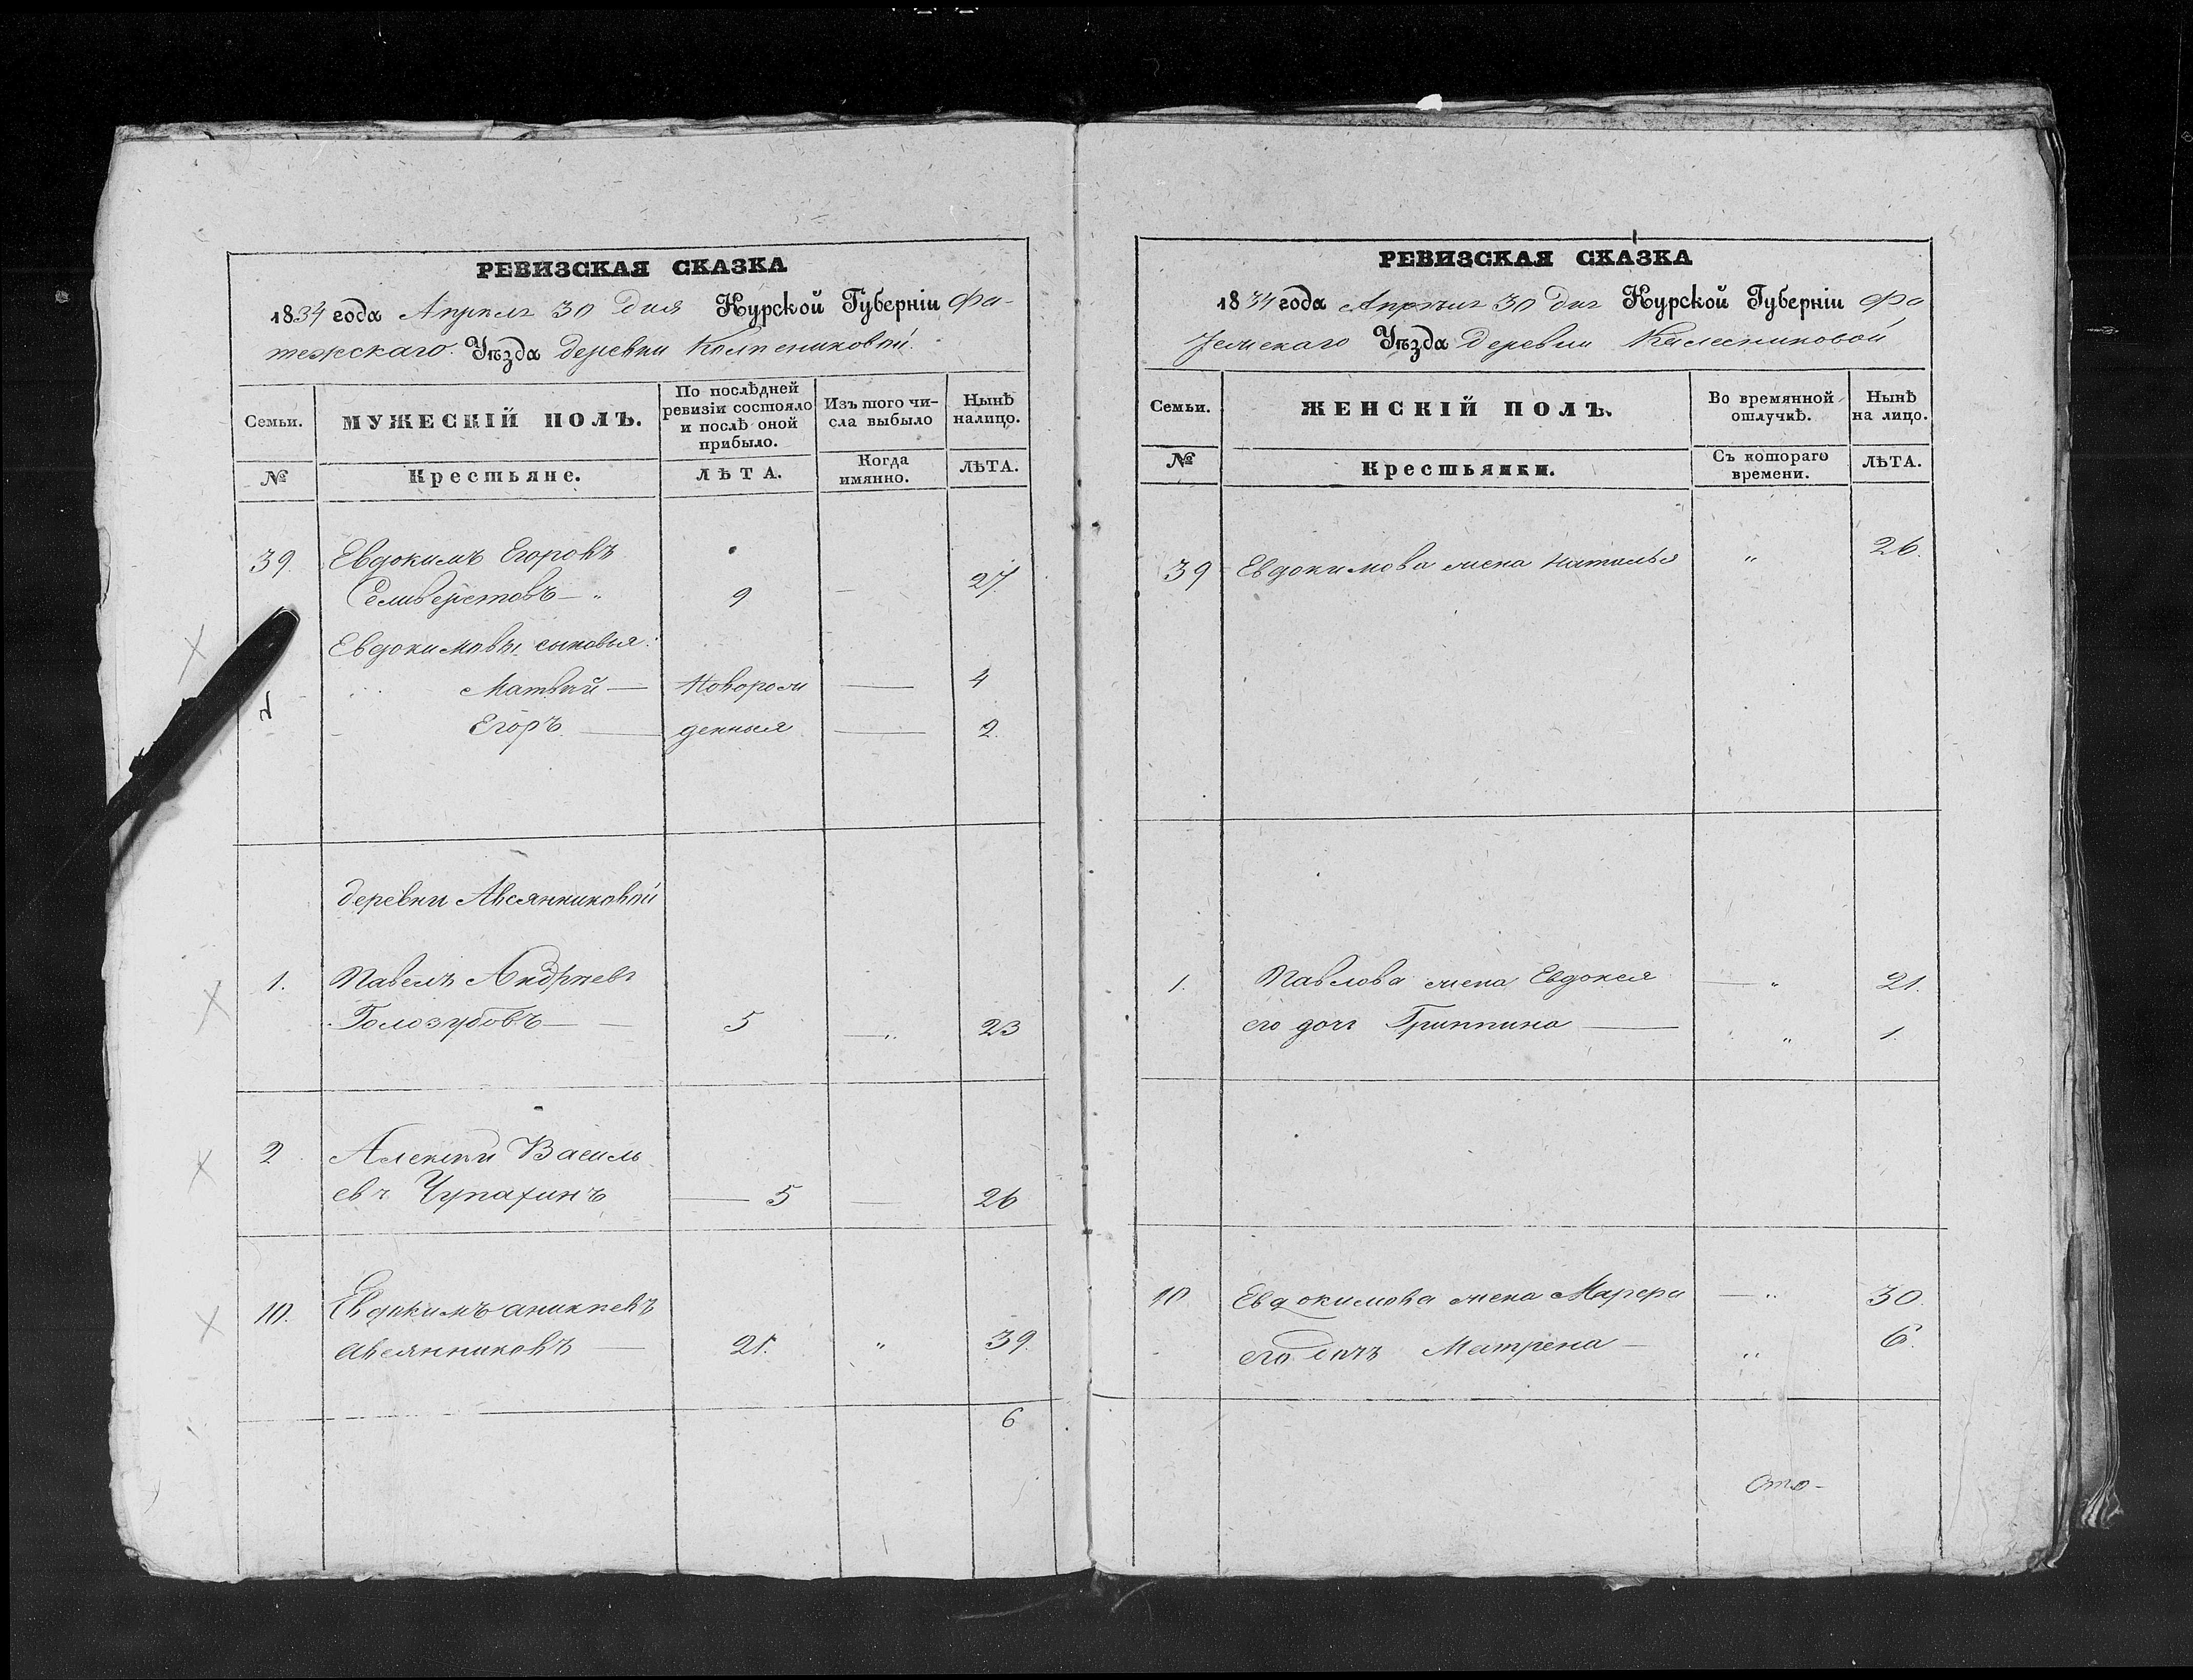 РЕВИЗСКАЯ СКАЗКА
1834 года Апреля 30 дня Курской Губерніи Фа-
тежскаго Уѣзда деревни
Семьи.
МУЖЕСКІЙ ПОЛЪ.
По послѣдней ревизіи состояло и послѣ оной прибыло.
Изъ того чи-сла выбыло
Нынѣ налицо.
№
Крестьяне.
ЛѢТА.
Когда имянно.
ЛѢТА.
39. Евдокимъ Егоровъ
Селиверстовъ — 9 — 27.
Евдокимовы сыновья:
Матвей — Новорож — 4
Егоръ — денныя — 2.
деревни Авсянниковой
1. Павелъ Андреевъ
Голозубовъ — 5 — 23
2. Алексѣй Василь
евъ Чупахинъ — 5 — 26
10. Евдокимъ аникеевъ
авсянниковъ — 21. " 39.
6
РЕВИЗСКАЯ СКАЗКА
1834 года Апрѣля 30 дня Курской Губерніи Фа
тежскаго Уѣзда деревни Калесниковой
Семьи.
ЖЕНСКІЙ ПОЛЪ.
Во времянной отлучкѣ.
Нынѣ на лицо.
№
Крестьянки.
Съ котораго времени.
ЛѢТА.
39 Евдокимова жена Наталья " 26.
1. Павлова жена Евдокея — " 21.
его дочь Гриппина — " 1.
10 Евдокимова жена — " 30.
его дочь Матрена — " 6.